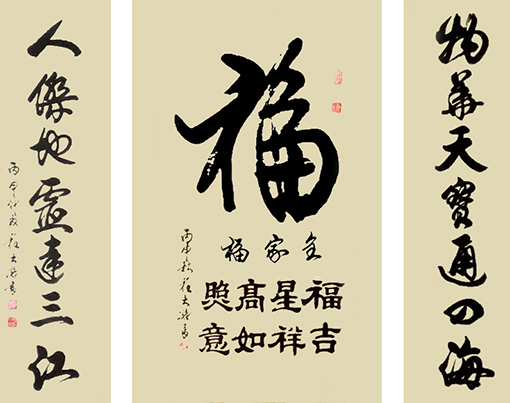 物華天寶通四海
福
全家福
福星高照
吉祥如意
丙申秋
人傑地靈達三江